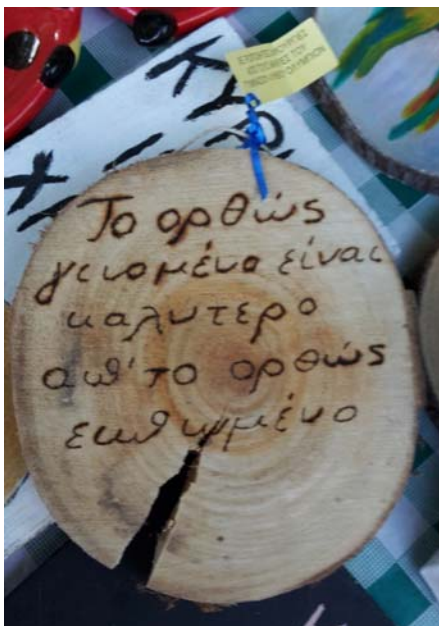 Το ορθώς
γεινομένο είναι
καλυτερο
απ' το ορθώς
ειπωμένο